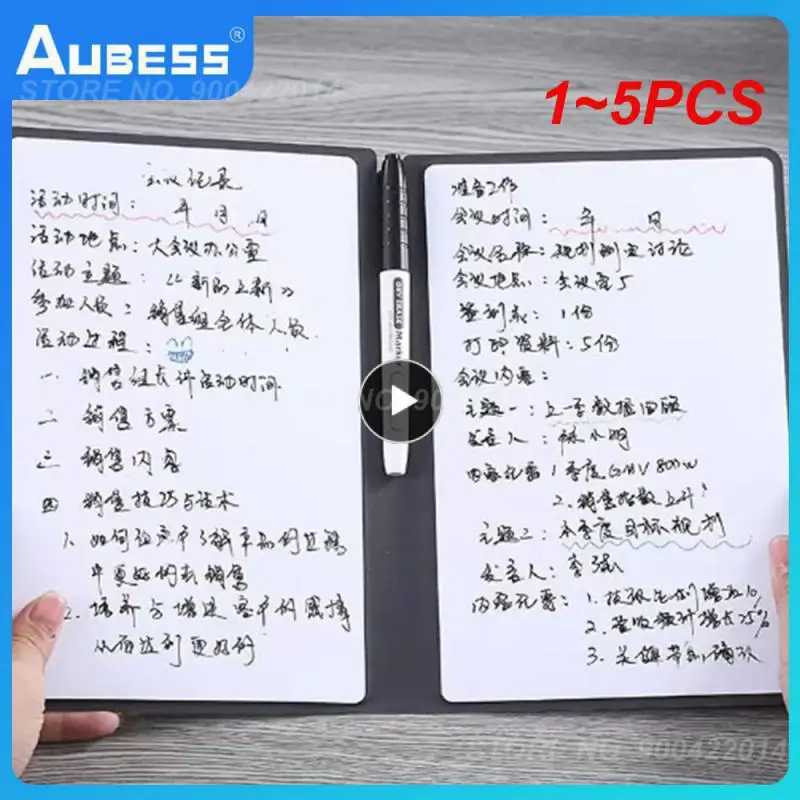 AUBESS®
STORE NO. 900422014
1~5PCS
会议记录
活动时间： 年 月 日
活动地点：大会议办公室
活动主题：《新的上新》
参加人员：销售组全体人员
活动过程：
一 销售组长讲活动时间
二 销售方案
三 销售内容
四 销售技巧与话术
1. 如何让客户了解产品
更好的去销售
2. 培养与增进客户的感情
从而达到更好的
准备工作
会议时间： 年 月
会议名称：规划制定讨论
会议地点：会议室5
签到表：1份
打印资料：5份
会议内容：
主题一：上一季数据回顾
发言人：林小明
内容纪要 1季度GMV 800w
2.销售指数上升
主题二：本季度目标规划
发言人：李强
内容纪要：1.
2. 营收预计增长25%
3.
DRY ERASE Marker
NO. 900
STORE NO. 900422014